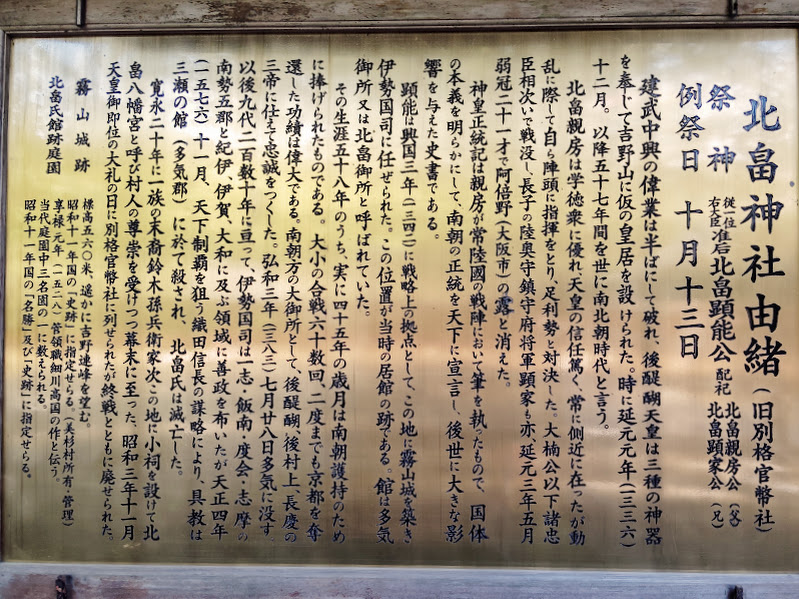 北畠神社由緒（旧別格官幣社）
祭神 從一位右大臣准后北畠顕能公 配祀 北畠親房公（父） 北畠顕家公（兄）
例祭日 十月十三日
建武中興の偉業は半ばにして破れ、後醍醐天皇は三種の神器
を奉じて吉野山に仮の皇居を設けられた。時に延元元年（一三三六）
十二月。以降五十七年間を世に南北朝時代と言う。
北畠親房は学徳衆に優れ、天皇の信任篤く、常に側近に在ったが動
乱に際して自ら陣頭に指揮をとり、足利勢と対決した。大楠公以下諸忠
臣相次いで戦没し、長子の陸奥守鎮守府将軍顕家も亦、延元三年五月
弱冠二十一才で阿倍野（大阪市）の露と消えた。
神皇正統記は親房が常陸國の戦陣において筆を執ったもので、国体
の本義を明らかにして、南朝の正統を天下に宣言し、後世に大きな影
響を与えた史書である。
顕能は興国三年（一三四二）に戦略上の拠点として、この地に霧山城を築き
伊勢国司に任ぜられた。この位置が当時の居館の跡である。館は多気
御所又は北畠御所と呼ばれていた。
その生涯五十八年のうち、実に四十五年の歳月は南朝護持のため
に捧げられたものである。大小の合戦六十数回、二度までも京都を奪
還した功績は偉大である。南朝方の大御所として、後醍醐、後村上、長慶の
三帝に仕えて忠誠をつくした。弘和三年（一三八三）七月廿八日多気に没す。
以後九代二百数十年に亘って、伊勢国司は一志・飯南・度会・志摩の
南勢五郡と紀伊、伊賀、大和に及ぶ領域に善政を布いたが天正四年
（一五七六）十一月、天下制覇を狙う織田信長の謀略により、具教は
三瀬の館（多気郡）に於て殺され、北畠氏は滅亡した。
寛永二十年に一族の末裔鈴木孫兵衛家次この地に小祠を設けて北
畠八幡宮と呼び村人の尊崇を受けつつ幕末に至った。昭和三年十一月
天皇御即位の大礼の日に別格官幣社に列せられたが終戦とともに廃せられた。
霧山城跡 標高五六〇米、遥かに吉野連峰を望む。
昭和十一年国の「史跡」に指定せらる。（美杉村所有・管理）
北畠氏館跡庭園 享禄元年（一五二八）管領職細川高国の作と伝う。
当代庭園中三名園の一に数えられる。
昭和十一年国の「名勝」及び「史跡」に指定せらる。